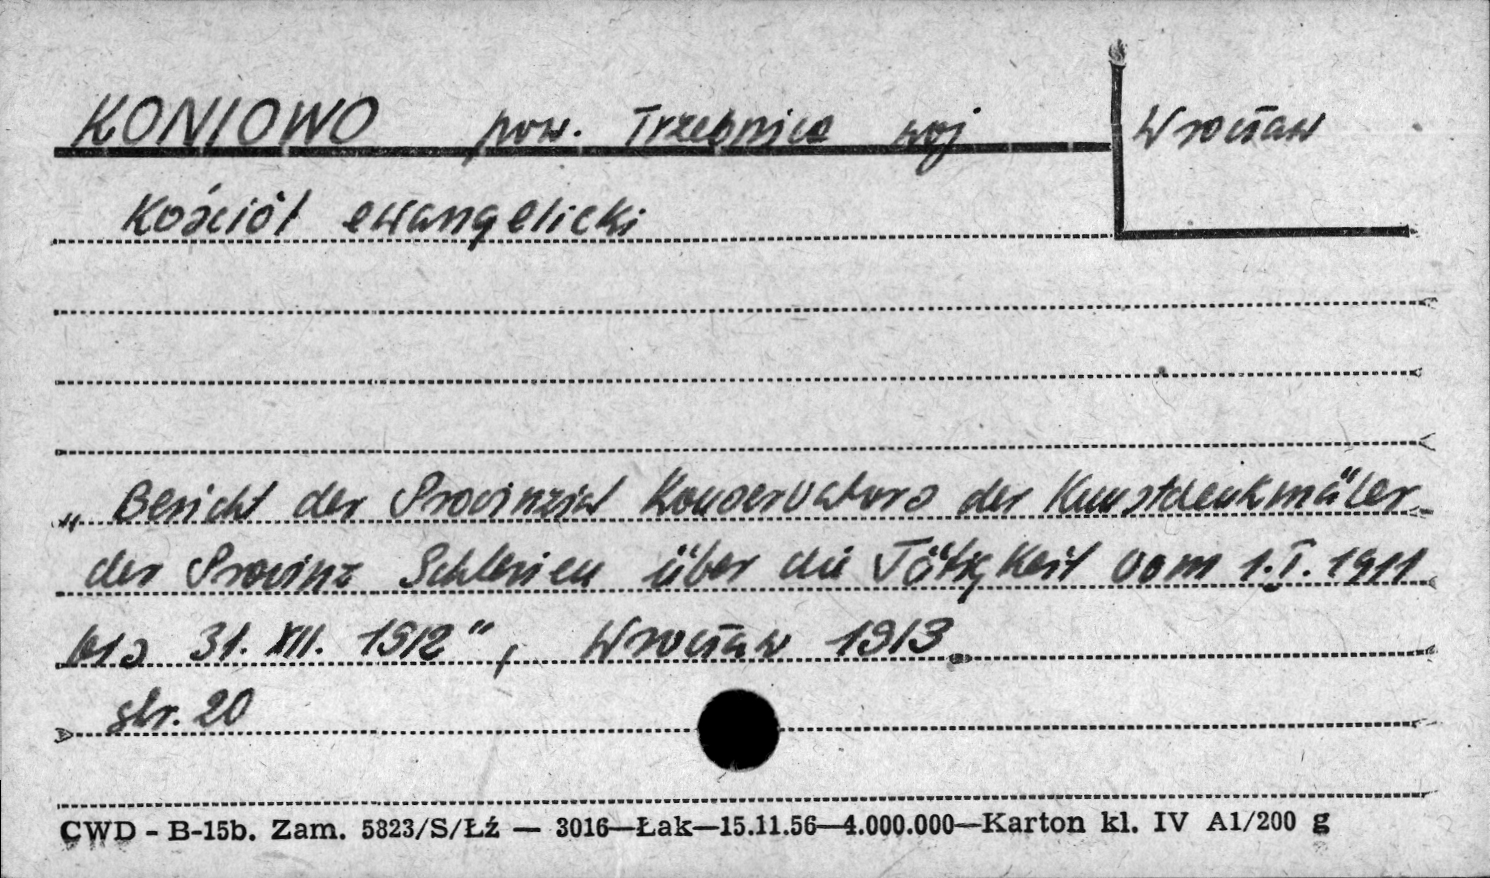 KONIOWO pow. Trzebnica woj Wrocław
Kościół ewangelicki
„Bericht der Provinzial Konservators der Kunstdenkmäler
der Provinz Schlesien über die Tätigkeit vom 1.I.1911
bis 31.XII.1912", Wrocław 1913.
str. 20
CWD - B-15b. Zam. 5823/S/Łź — 3016—Łak—15.11.56—4.000.000—Karton kl. IV A1/200 g